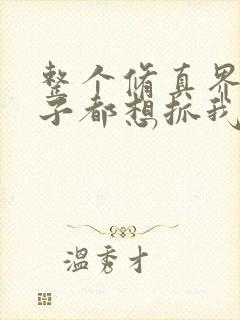 整个脩真界
子都想抓我
温秀才